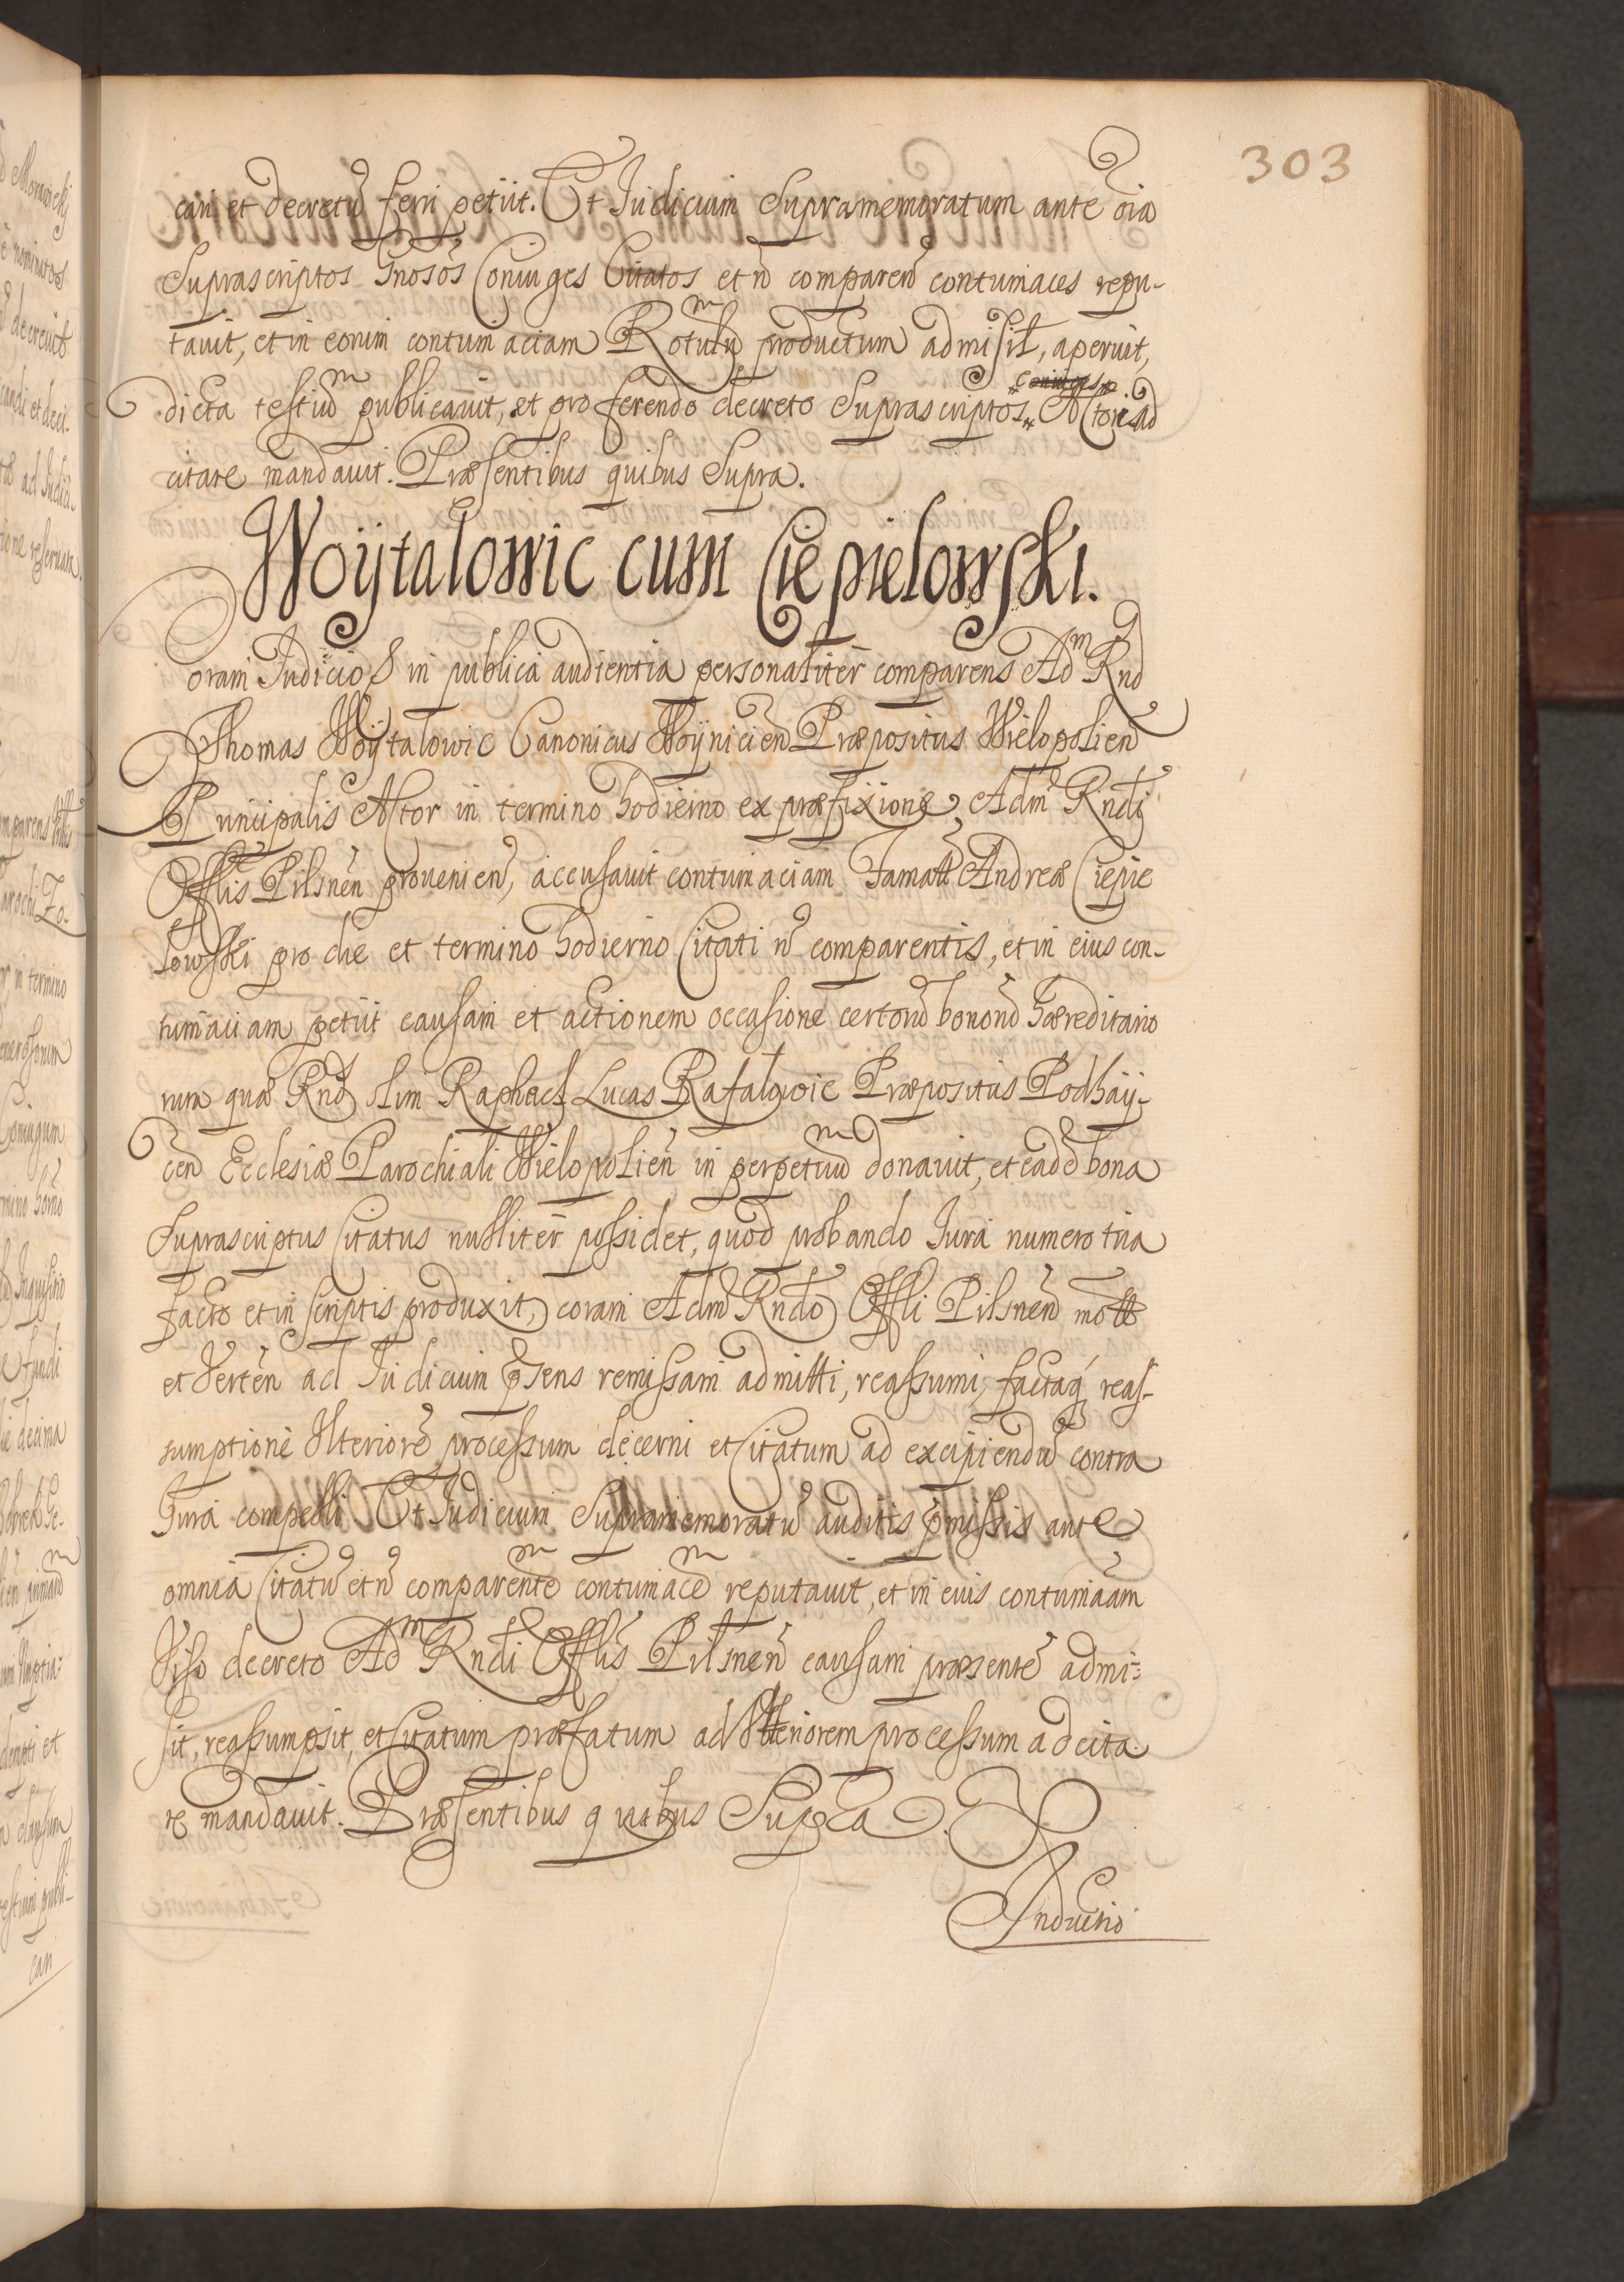 303
cari et decretũ ferri petiit. Et Judicium Supramemoratum ante oĩa
Suprascriptos Gnosos Coniuges Citatos et nõ comparen̄ contumaces repu-
tavit, et in eorum contumaciam Rotulũ productum admisit, aperuit,
coniuges
dicta testiũ publicavit, et pro ferendo decreto Suprascriptos Actoris ad
citare mandavit. Præsentibus quibus Supra.
Woÿtalowic cum Ciepielowski.
Coram Judicio S in publica audientia personaliter comparens Adm Rnd
Thomas Woÿtalowic Canonicus Woÿnicien̄ Præpositus Wielopolien̄
Principalis Actor in termino hodierno ex præfixione Adm Rndi
Offlis Pilsnen̄ provenien̄, accusavit contumaciam Famati Andreæ Ciepie
lowski pro die et termino hodierno Citati nõ comparentis, et in eius con-
tumaciam petiit causam et actionem occasione certorũ bonorũ hæreditario
rum quæ Rnd olim Raphael Lucas Rafalowic Præpositus Podhaÿ-
cen̄ Ecclesiæ Parochiali Wielopolien̄ in perpetuũ donavit, et eadẽ bona
Suprascriptus Citatus nulliter possidet, quod probando Jura numero tria
facto et in scriptis produxit, coram Adm Rndo Offli Pilsnen̄ mott
et verten̄ ad Judicium p̃sens remissam admitti, reassumi, factaq́ reas-
sumptione Ulteriorẽ processum decerni et Citatum ad excipiendũ contra
Jura compelli Et Judicium Supramemoratũ auditis p̃missis ante
omnia Citatũ et nõ comparentẽ contumacẽ reputavit, et in eius contumaciam
Viso decreto Adm Rndi Offlis Pilsnen̄ causam præsentẽ admi-
sit, reassumpsit, et Citatum præfatum ad Ulteriorem processum adcita
re mandavit. Præsentibus quibus Supra.
Inductio